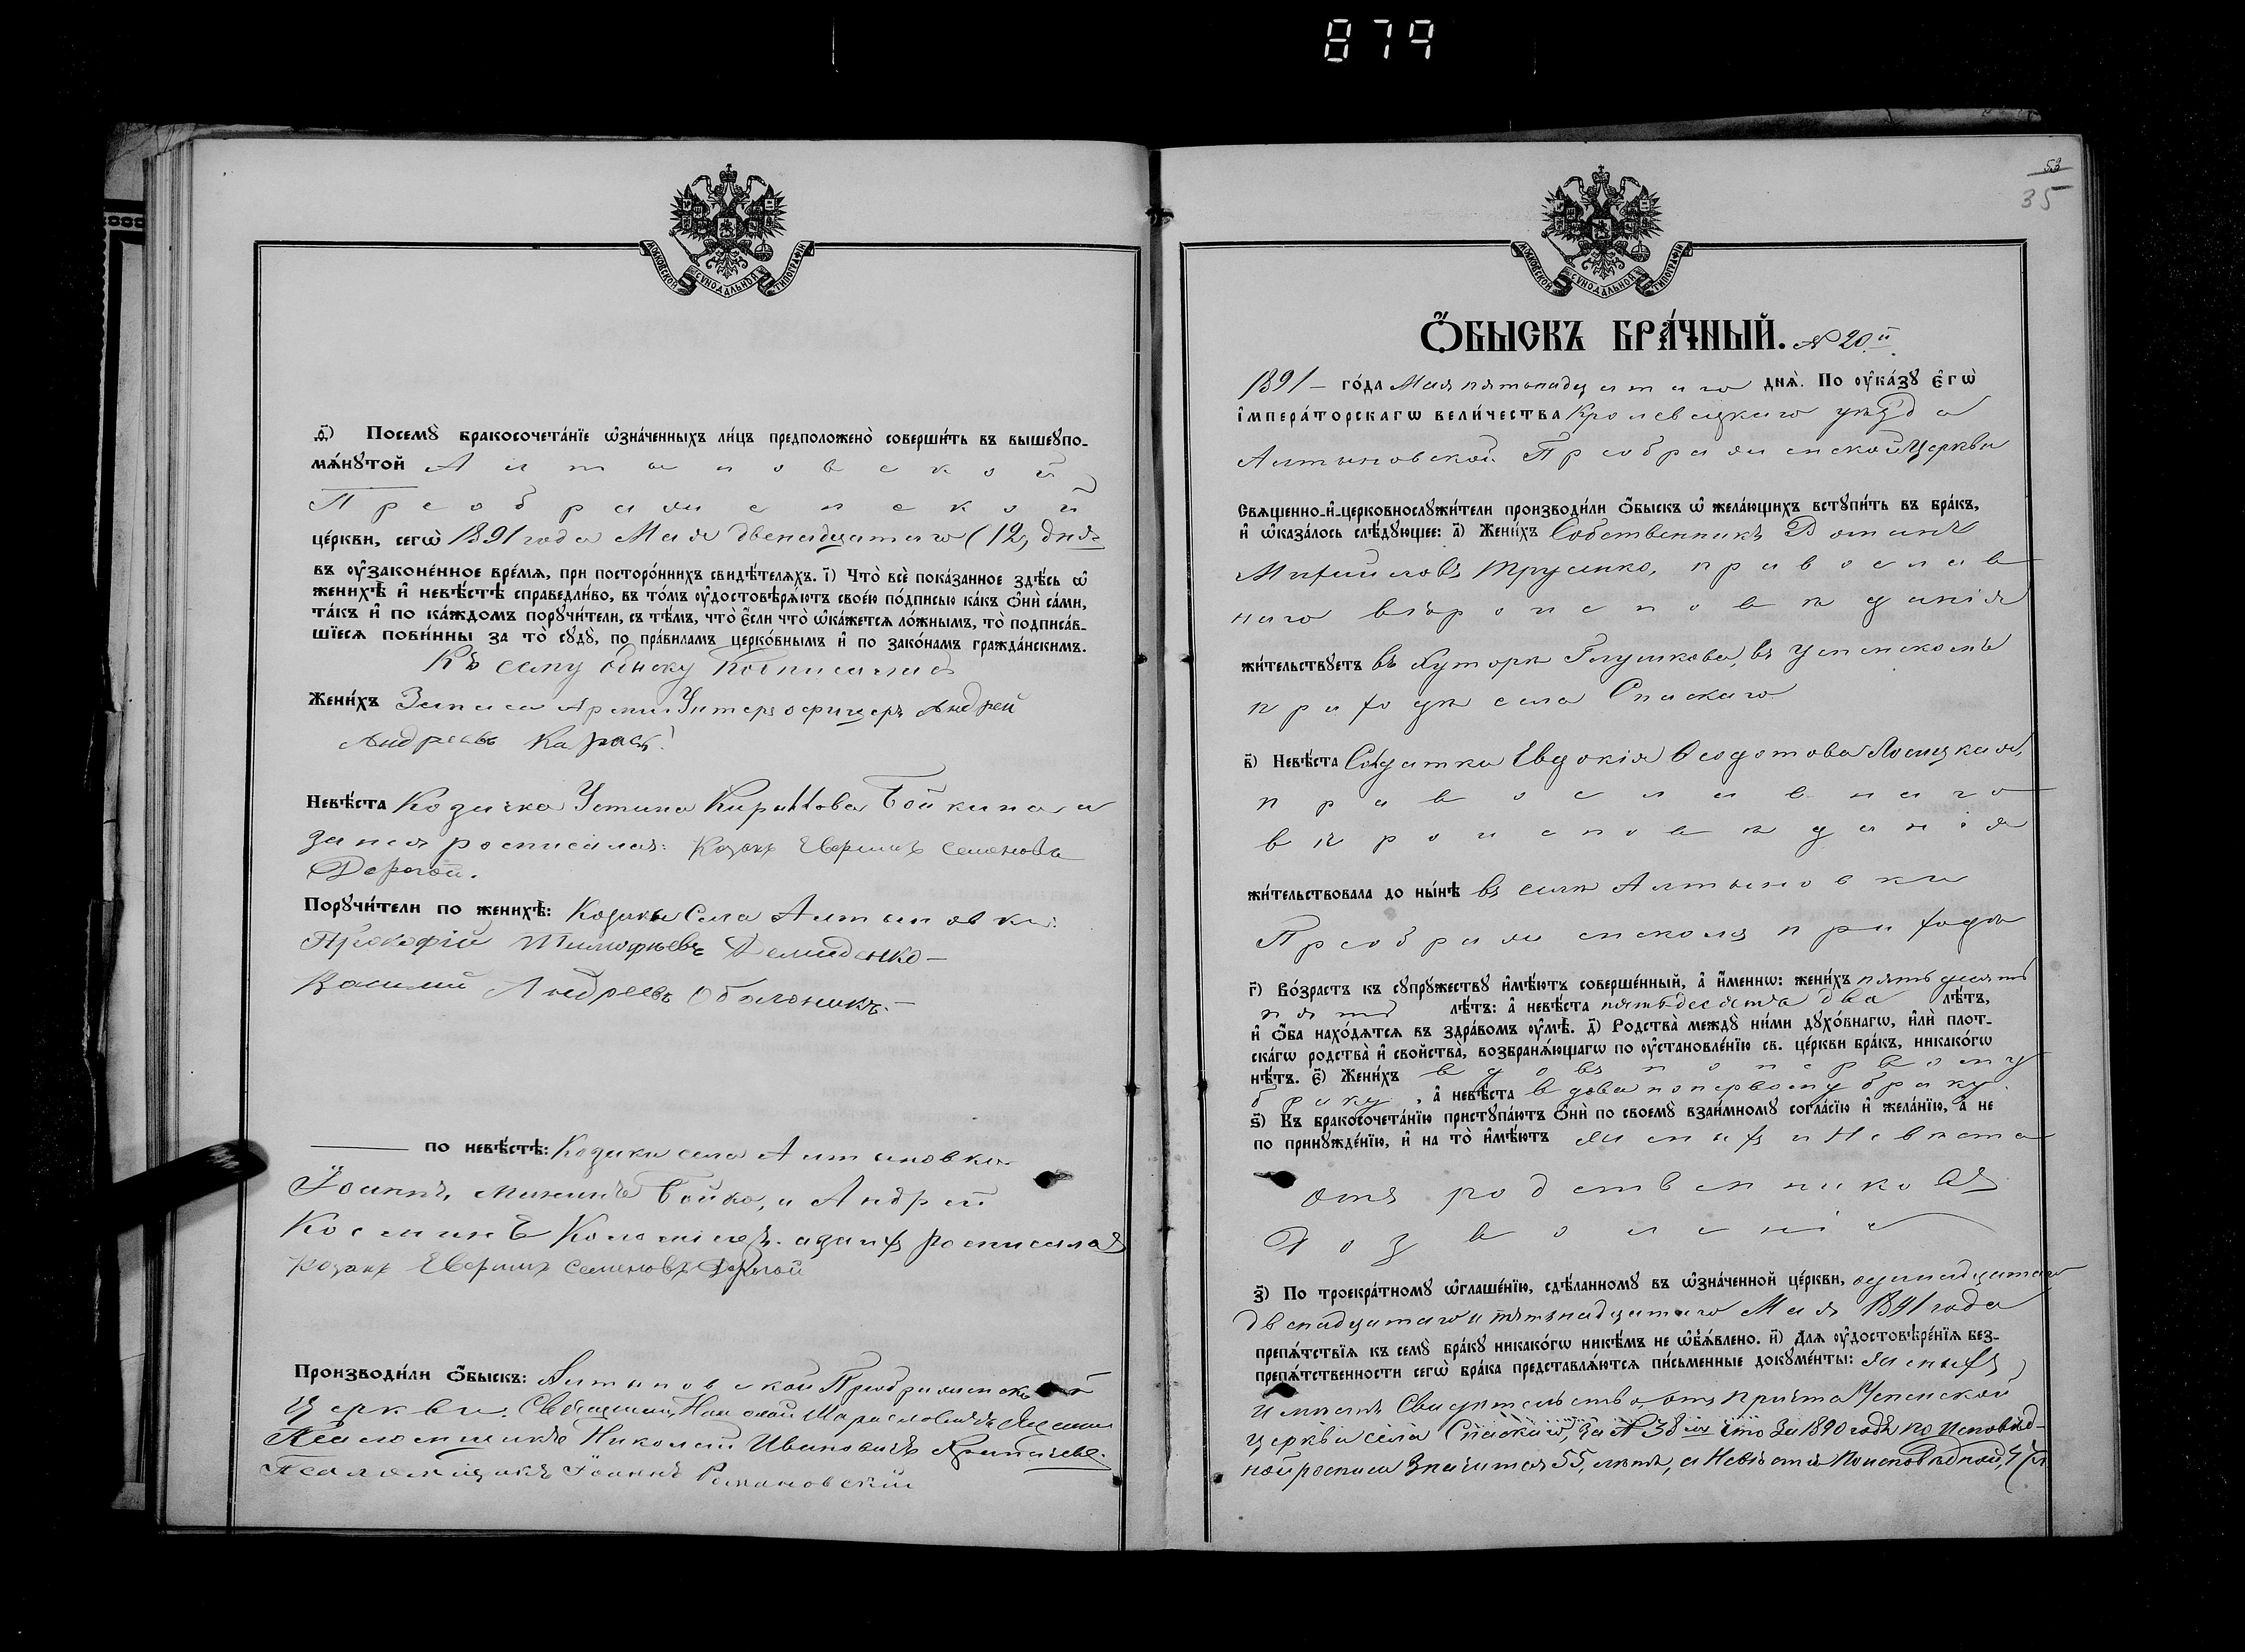 879
МОСКОВСКОЙ СѴНОДАЛЬНОЙ ТИПОГРАФІИ
ѳ҃) Посемꙋ̀ бракосочета́нїе ѡ҆зна́ченныхъ ли́цъ предположено̀ соверши́ть въ вышеꙋпо-
мѧ́нꙋтой Алтыновской
Преображенской
це́ркви, сегѡ̀ 1891 года Мая двенадцатаго (12) дня
въ ᲂу҆законе́нное вре́мѧ, при посторо́ннихъ свидѣ́телѧхъ. і҃) Что̀ всѐ пока́занное здѣ́сь ѡ҆
женихѣ̀ и҆ невѣ́стѣ справедли́во, въ то́мъ ᲂу҆достовѣрѧ́ютъ свое́ю по́дписью ка́къ ѻ҆нѝ са́ми,
та́къ и҆ по ка́ждомъ порꙋчи́тели, съ тѣ́мъ, что̀ є҆сли что̀ ѡ҆ка́жетсѧ ло́жнымъ, то̀ подписа́в-
шїесѧ пови́нны за то̀ сꙋдꙋ̀, по пра́виламъ церко́внымъ и҆ по зако́намъ гражда́нскимъ.
Къ сему обыску подписались
Жени́хъ Запаса Армии Унтеръ офицеръ Андрей
Андреевъ Карась
Невѣ́ста Козачка Устина Кириллова Бойкина а
за нея росписался: Козакъ Семеновъ
Дорогой.
Порꙋчи́тели по женихѣ̀: Козаки Села Алтыновки:
Прокофій Тимофѣевъ Демиденко —
Василий Андреевъ Оболоникъ. —
по невѣ́стѣ: Козаки села Алтыновки
Іоаннъ Бойко, и Андрей
Косминъ а за нихъ росписался
козакъ Семеновъ Дорогой
Производи́ли ѻ҆́быскъ: Алтыновской Преображенской
Церкви: Священникъ Николай
Псаломщикъ Николай Ивановичъ
Псаломщикъ Іоаннъ Романовский
53
35
МОСКОВСКОЙ СѴНОДАЛЬНОЙ ТИПОГРАФІИ
Ѻ҆́БЫСКЪ БРА́ЧНЫЙ. № 20й
1891 — го́да Мая пятьнадцатаго днѧ̀. По ᲂу҆ка́зꙋ є҆гѡ̀
і҆мпера́торскагѡ вели́чества Кролевецкаго уѣзда
Алтыновской Преображенской Церкви
Свѧщенно-и҆-церковнослꙋжи́тели производи́ли ѻ҆́быскъ ѡ҆ жела́ющихъ встꙋпи́ть въ бра́къ,
и҆ ѡ҆каза́лось слѣ́дꙋющее: а҃) Жени́хъ Собственникъ Потапъ
Михайловъ Трусенко, православ
наго вѣроисповѣданія
жи́тельствꙋетъ въ Хуторѣ Глушкова, въ Успенскомъ
приходѣ села Спаскаго
в҃) Невѣ́ста Солдатка Евдокія Ѳеодотова
православнаго
вѣроисповѣданія
жи́тельствовала до ны́нѣ въ селѣ Алтыновки
Преображенскомъ приходѣ
г҃) Во́зрастъ къ сꙋпрꙋ́жествꙋ и҆мѣ́ютъ соверше́нный, а҆ и҆́меннѡ: жени́хъ пятьдесятъ
пять лѣ́тъ: а҆ невѣ́ста пятьдесятъ два лѣ́тъ,
и҆ ѻ҆́ба нахо́дѧтсѧ въ здра́вомъ ᲂу҆мѣ̀. д҃) Родства̀ междꙋ̀ ни́ми дꙋхо́внагѡ, и҆лѝ плот-
ска́гѡ родства̀ и҆ свойства̀, возбранѧ́ющагѡ по ᲂу҆становле́нїю св. це́ркви бра́къ, никако́гѡ
нѣ́тъ. є҃) Жени́хъ вдовъ по первому
браку, а҆ невѣ́ста вдова по первому браку.
ѕ҃) Къ бракосочета́нїю пристꙋпа́ютъ ѻ҆нѝ по своемꙋ̀ взаи́мномꙋ согла́сїю и҆ жела́нїю, а҆ не
по принꙋжде́нїю, и҆ на то̀ и҆мѣ́ютъ женихъ и Невѣста
отъ родственниковъ
дозволеніе
з҃) По троекра́тномꙋ ѡ҆глаше́нїю, сдѣ́ланномꙋ въ ѡ҆зна́ченной це́ркви, одинадцатаго
двенадцатаго и пятьнадцатаго Мая 1891 года
препѧ́тствїѧ къ семꙋ̀ бра́кꙋ никако́гѡ никѣ́мъ не ѡ҆б̾ѧ́влено. и҃) Длѧ ᲂу҆достовѣре́нїѧ без-
препѧ́тственности сегѡ̀ бра́ка представлѧ́ютсѧ пи́сьменные докꙋме́нты: женихъ
имѣетъ Свидетельство отъ причта Успенской
церкви села Спаскаго, за № 38 что за 1890 годъ по исповѣд-
ной росписи значится 55, летъ, а Невѣста по исповѣдной,